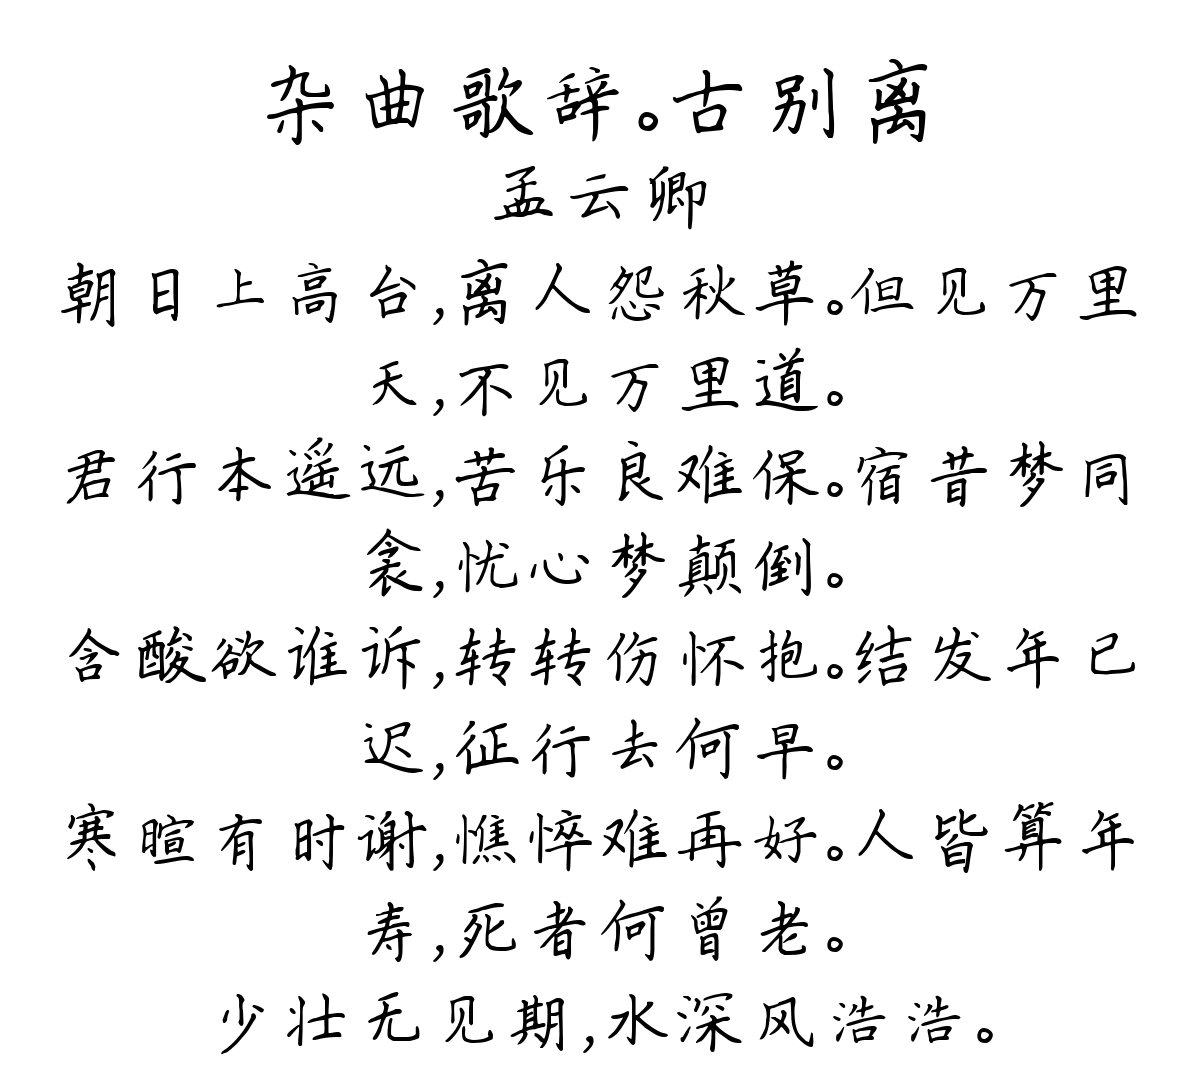 杂曲歌辞。古别离
孟云卿
朝日上高台,离人怨秋草。但见万里
天,不见万里道。
君行本遥远,苦乐良难保。宿昔梦同
衾,忧心梦颠倒。
含酸欲谁诉,转转伤怀抱。结发年已
迟,征行去何早。
寒暄有时谢,憔悴难再好。人皆算年
寿,死者何曾老。
少壮无见期,水深风浩浩。